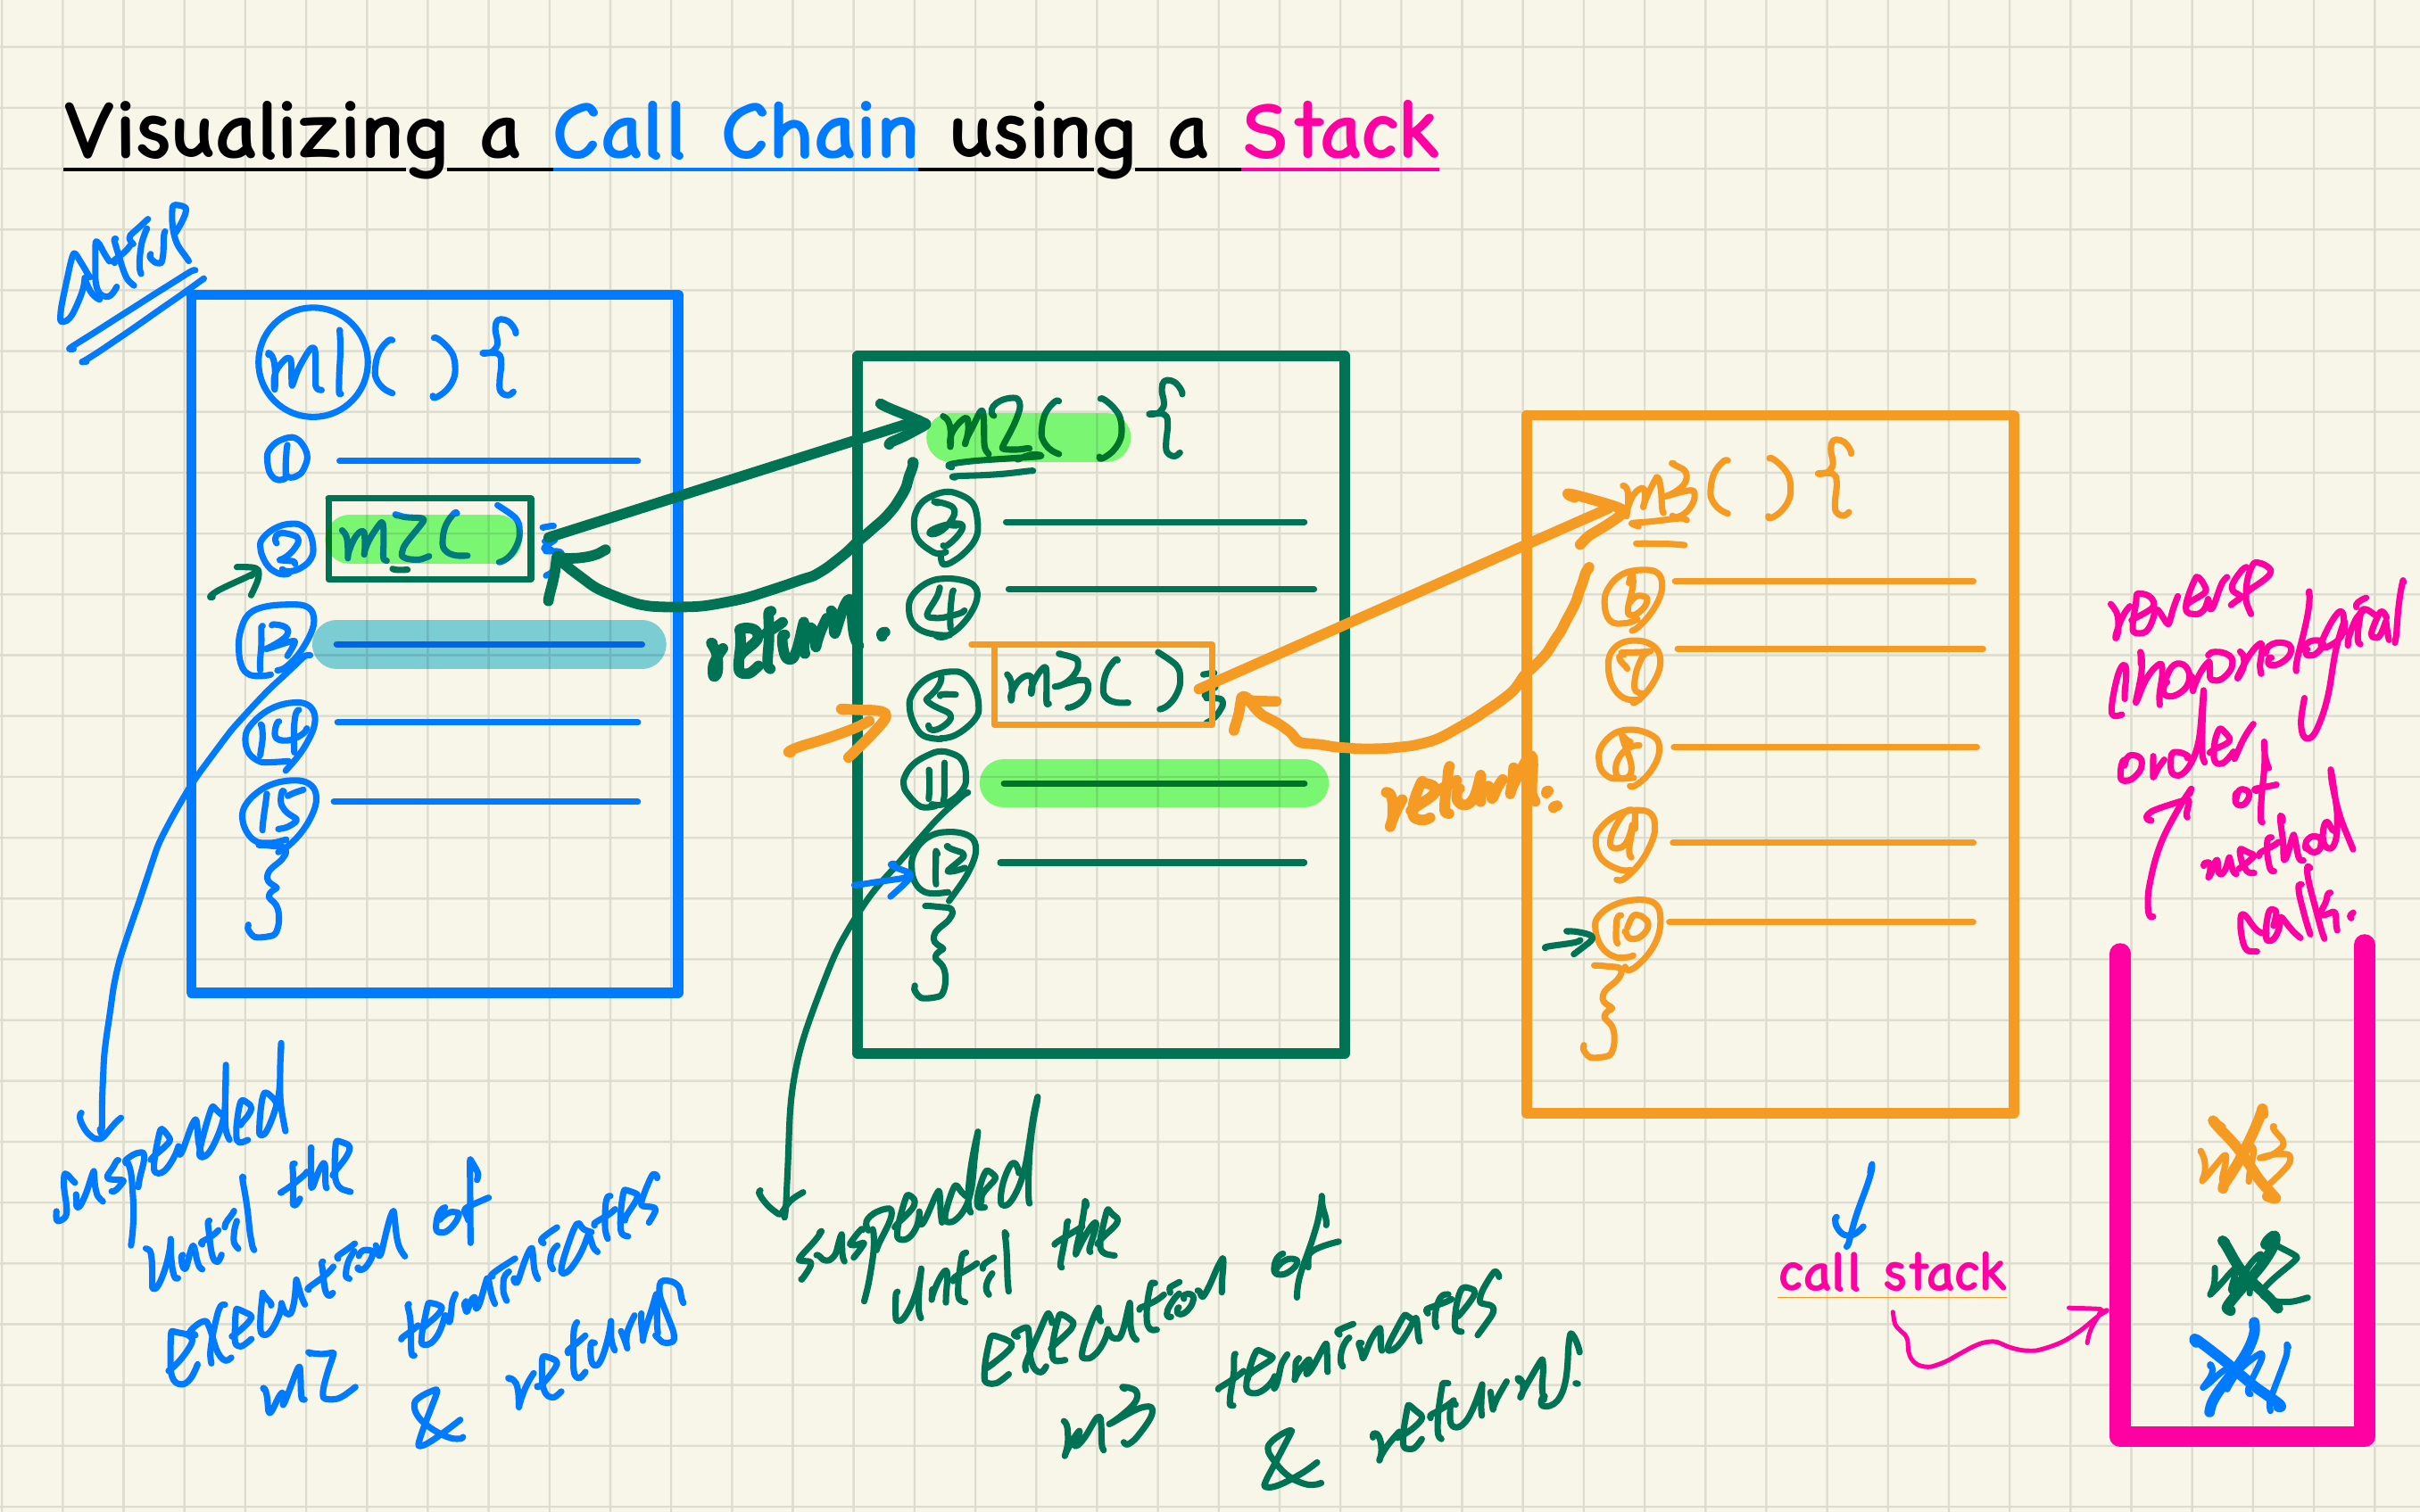 Visualizing a Call Chain using a Stack
m1 ( ) {
①
② m2 ( ) ;
⑬
⑭
⑮
}
m2 ( ) {
③
④
⑤ m3 ( ) ;
⑪
⑫
}
return.
m3 ( ) {
⑥
⑦
⑧
⑨
⑩
}
return.
suspended
until the
execution of
m2 terminates
& returns
suspended
until the
execution of
m3 terminates
& returns.
reverse
chronological
order of
method
calls.
call stack
m3
m2
m1